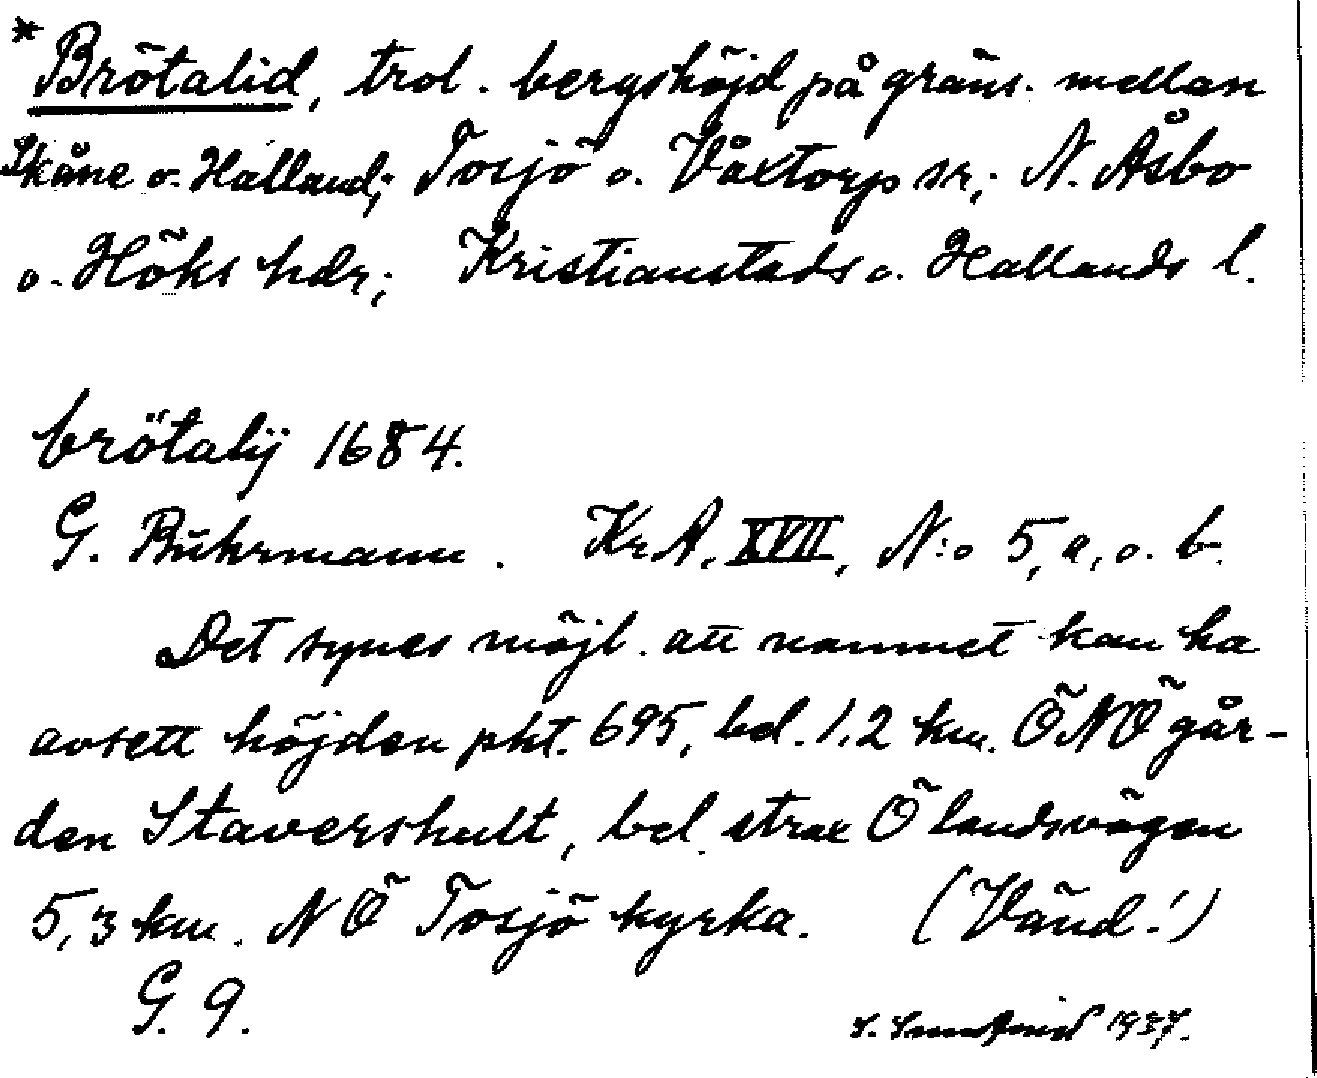 * Brötalid, trol. bergshöjd på gräns. mellan
Skåne o. Halland; Tosjö o. Våxtorp sr; N. Åsbo
o. Höks hdr; Kristianstads o. Hallands l.
brötalÿ 1684.
G. Buhrmann. Kr A. XVII, N:o 5, a, o. b.
Det synes möjl. att namnet kan ha
avsett höjden pkt. 695, bel. 1,2 km. ÖNÖ går-
den Stavershult, bel. strax Ö landsvägen
5,3 km. NÖ Tosjö kyrka. (Vänd!)
G. 9.
1937.